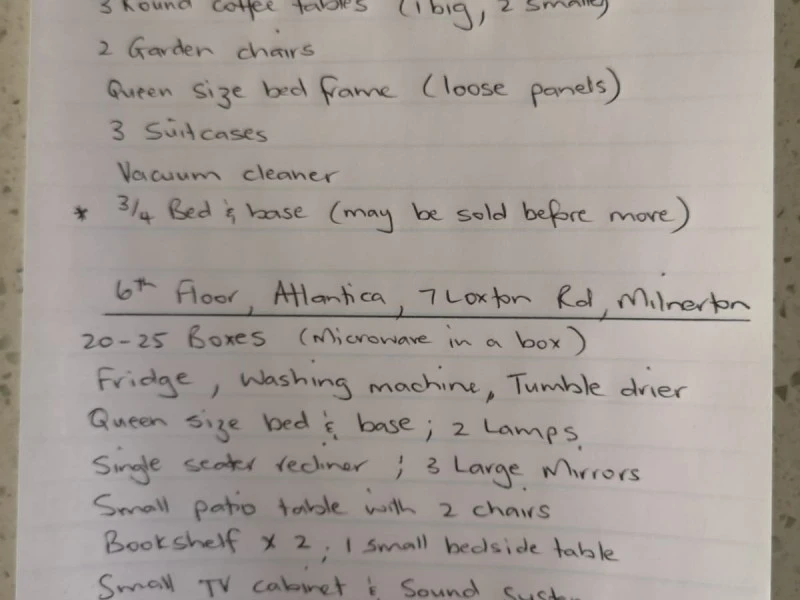 3 Round coffee tables (1 big, 2 small)
2 Garden chairs
Queen size bed frame (loose panels)
3 Suitcases
Vacuum cleaner
* 3/4 Bed & base (may be sold before more)
6th Floor, Atlantica, 7 Loxton Rd, Milnerton
20-25 Boxes (Microwave in a box)
Fridge, Washing machine, Tumble drier
Queen size bed & base; 2 Lamps
Single seater recliner; 3 Large Mirrors
Small patio table with 2 chairs
Bookshelf x 2; 1 small bedside table
Small TV cabinet & Sound System